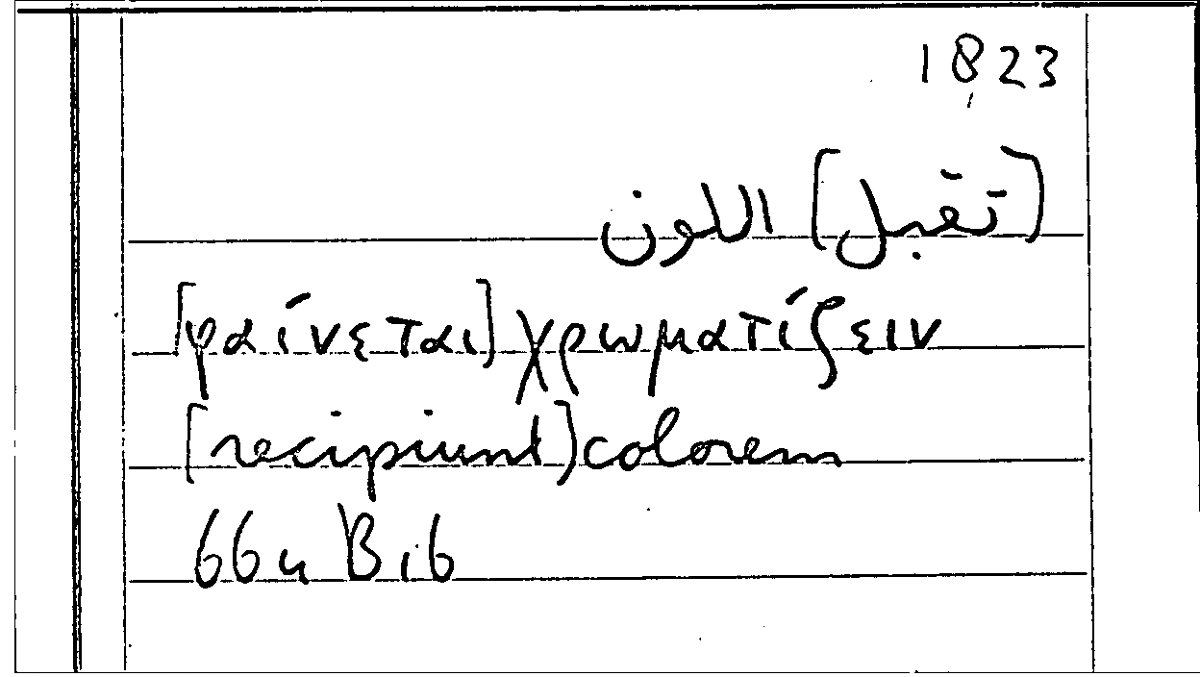 1823
(تقبل) اللون
[φαίνεται] χρωματίζειν
[recipiunt] colorem
66u B16